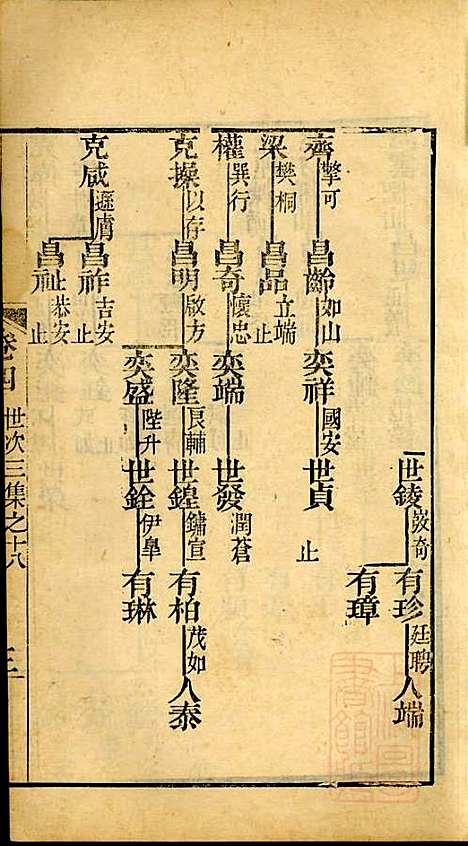 世錂巖奇 有珍廷聘 人端
有璋
齊擎可 昌齡如山 奕祥國安 世貞 止
梁樊桐 昌品立端 止
權巽行 昌奇懷忠 奕端 世發潤蒼
克操以存 昌明啟方 奕隆良輔 世鍠鏞宣 有柏茂如 人泰
奕盛陛升 世銓伊臯 有琳
克咸遜膚 昌祚吉安 止
昌祉恭安 止
卷四 世次三集之十八 三